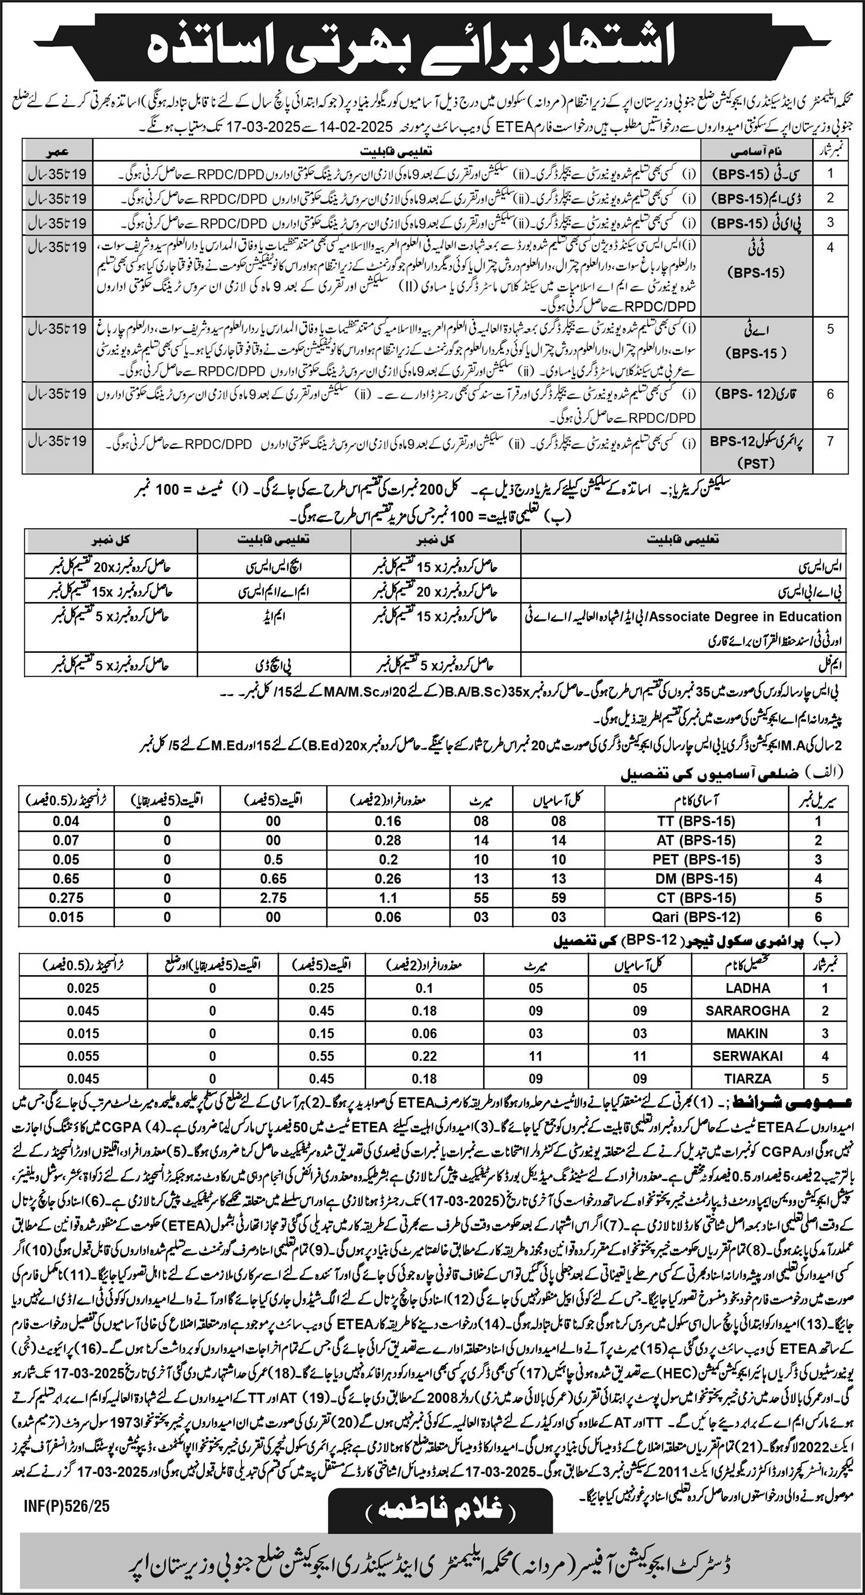 اشتہار برائے بھرتی اساتذہ
محکمہ ایلیمنٹری اینڈ سیکنڈری ایجوکیشن ضلع جنوبی وزیرستان اپر کے زیر انتظام (مردانہ) سکولوں میں درج ذیل آسامیوں کو ریگولر بنیاد پر (جو کہ ابتدائی پانچ سال کے لئے نا قابل تبادلہ ہونگی) اساتذہ بھرتی کرنے کے لئے ضلع
جنوبی وزیرستان اپر کے سکونتی امیدواروں سے درخواستیں مطلوب ہیں درخواست فارم ETEA کی ویب سائٹ پر مورخہ 14-02-2025 سے 17-03-2025 تک دستیاب ہونگے۔
نمبر شمار نام آسامی تعلیمی قابلیت عمر
1 سی۔ٹی (BPS-15) (i) کسی بھی تسلیم شدہ یونیورسٹی سے بیچلر ڈگری۔ (ii) سلیکشن اور تقرری کے بعد 9 ماہ کی لازمی ان سروس ٹریننگ حکومتی اداروں RPDC/DPD سے حاصل کرنی ہوگی۔ 19 تا 35 سال
2 ڈی۔ایم (BPS-15) (i) کسی بھی تسلیم شدہ یونیورسٹی سے بیچلر ڈگری۔ (ii) سلیکشن اور تقرری کے بعد 9 ماہ کی لازمی ان سروس ٹریننگ حکومتی اداروں RPDC/DPD سے حاصل کرنی ہوگی۔ 19 تا 35 سال
3 پی ای ٹی (BPS-15) (i) کسی بھی تسلیم شدہ یونیورسٹی سے بیچلر ڈگری۔ (ii) سلیکشن اور تقرری کے بعد 9 ماہ کی لازمی ان سروس ٹریننگ حکومتی اداروں RPDC/DPD سے حاصل کرنی ہوگی۔ 19 تا 35 سال
4 ٹی ٹی (i) ایس ایس سی سیکنڈ ڈویژن کسی بھی تسلیم شدہ بورڈ سے بمعہ شہادت العالمیہ فی العلوم العربیہ والاسلامیہ کسی بھی مستند تنظیمات یا وفاق المدارس یا دارالعلوم سیدو شریف سوات، 19 تا 35 سال
(BPS-15) دارالعلوم چار باغ سوات، دارالعلوم چترال، دارالعلوم دروش چترال یا کوئی دیگر دارالعلوم جو گورنمنٹ کے زیر انتظام ہو اور اس کا نوٹیفیکیشن حکومت نے وقتاً فوقتاً جاری کیا ہو یا کسی بھی تسلیم
شدہ یونیورسٹی سے ایم اے اسلامیات میں سیکنڈ کلاس ماسٹر ڈگری یا مساوی (II) سلیکشن اور تقرری کے بعد 9 ماہ کی لازمی ان سروس ٹریننگ حکومتی اداروں
RPDC/DPD سے حاصل کرنی ہوگی۔
5 اے ٹی (i) کسی بھی تسلیم شدہ یونیورسٹی سے بیچلر ڈگری بمعہ شہادۃ العالمیہ فی العلوم العربیہ والاسلامیہ کسی مستند تنظیمات یا وفاق المدارس یا دارالعلوم سیدو شریف سوات، دارالعلوم چار باغ 19 تا 35 سال
(BPS-15) سوات، دارالعلوم چترال، دارالعلوم دروش چترال یا کوئی دیگر دارالعلوم جو گورنمنٹ کے زیر انتظام ہو اور اس کا نوٹیفیکیشن حکومت نے وقتاً فوقتاً جاری کیا ہو۔ یا کسی بھی تسلیم شدہ یونیورسٹی
سے عربی میں سیکنڈ کلاس ماسٹر ڈگری یا مساوی۔ (ii) سلیکشن اور تقرری کے بعد 9 ماہ کی لازمی ان سروس ٹریننگ حکومتی اداروں RPDC/DPD سے حاصل کرنی ہوگی۔
6 قاری (BPS- 12) (i) کسی بھی تسلیم شدہ یونیورسٹی سے بیچلر ڈگری اور قرآت سند کسی بھی رجسٹرڈ ادارے سے۔ (ii) سلیکشن اور تقرری کے بعد 9 ماہ کی لازمی ان سروس ٹریننگ حکومتی اداروں 19 تا 35 سال
RPDC/DPD سے حاصل کرنی ہوگی۔
7 پرائمری سکول BPS-12 (i) کسی بھی تسلیم شدہ یونیورسٹی سے بیچلر ڈگری۔ (ii) سلیکشن اور تقرری کے بعد 9 ماہ کی لازمی ان سروس ٹریننگ حکومتی اداروں RPDC/DPD سے حاصل کرنی ہوگی۔ 19 تا 35 سال
(PST)
سلیکشن کریٹریا؛۔ اساتذہ کے سلیکشن کیلئے کریٹریا درج ذیل ہے۔ کل 200 نمبرات کی تقسیم اس طرح سے کی جائے گی۔ (ا) ٹیسٹ = 100 نمبر
(ب) تعلیمی قابلیت = 100 نمبر جس کی مزید تقسیم اس طرح سے ہوگی۔
تعلیمی قابلیت کل نمبر تعلیمی قابلیت کل نمبر
ایس ایس سی حاصل کردہ نمبر x 15 تقسیم کل نمبر ایچ ایس ایس سی حاصل کردہ نمبر x20 تقسیم کل نمبر
بی اے/ بی ایس سی حاصل کردہ نمبر x 20 تقسیم کل نمبر ایم اے/ ایم ایس سی حاصل کردہ نمبر x15 تقسیم کل نمبر
Associate Degree in Education/ بی ایڈ/ شہادہ العالمیہ/ اے اے ٹی حاصل کردہ نمبر x 15 تقسیم کل نمبر ایم ایڈ حاصل کردہ نمبر x 5 تقسیم کل نمبر
اور ٹی ٹی/ سند حفظ القرآن برائے قاری
ایم فل حاصل کردہ نمبر x 5 تقسیم کل نمبر پی ایچ ڈی حاصل کردہ نمبر x 5 تقسیم کل نمبر
بی ایس چار سالہ کورس کی صورت میں 35 نمبروں کی تقسیم اس طرح ہوگی۔ حاصل کردہ نمبر x35 (B.A/B.Sc) کے لئے 20 اور MA/M.Sc کے لئے 15/ کل نمبر۔ ۔ ۔
پیشہ ورانہ ایم اے ایجوکیشن کی صورت میں نمبر کی تقسیم بطریقہ ذیل ہوگی۔
2 سال کی M.A ایجوکیشن ڈگری یا بی ایس چار سال کی ایجوکیشن ڈگری کی صورت میں 20 نمبر اس طرح شمار کئے جائینگے۔ حاصل کردہ نمبر x20 (B.Ed) کے لئے 15 اور M.Ed کے لئے 5/ کل نمبر
(الف) ضلعی آسامیوں کی تفصیل
سیریل نمبر آسامی کا نام کل آسامیاں میرٹ معذور افراد (2 فیصد) اقلیت (5 فیصد) اقلیت (5 فیصد بقایا) ٹرانسجینڈر (0.5 فیصد)
1 TT (BPS-15) 08 08 0.16 00 0 0.04
2 AT (BPS-15) 14 14 0.28 00 0 0.07
3 PET (BPS-15) 10 10 0.2 0.5 0 0.05
4 DM (BPS-15) 13 13 0.26 0.65 0 0.65
5 CT (BPS-15) 59 55 1.1 2.75 0 0.275
6 Qari (BPS-12) 03 03 0.06 00 0 0.015
(ب) پرائمری سکول ٹیچر (BPS-12) کی تفصیل
نمبر شمار تحصیل کا نام کل آسامیاں میرٹ معذور افراد (2 فیصد) اقلیت (5 فیصد) اقلیت (5 فیصد بقایا) اور ضلع ٹرانسجینڈر (0.5 فیصد)
1 LADHA 05 05 0.1 0.25 0 0.025
2 SARAROGHA 09 09 0.18 0.45 0 0.045
3 MAKIN 03 03 0.06 0.15 0 0.015
4 SERWAKAI 11 11 0.22 0.55 0 0.055
5 TIARZA 09 09 0.18 0.45 0 0.045
عمومی شرائط؛۔ (1) بھرتی کے لئے منعقد کیا جانے والا ٹیسٹ مرحلہ وار ہوگا اور طریقہ کار صرف ETEA کی صوابدید پر ہوگا۔ (2) ہر آسامی کے لئے ضلع کی سطح پر علیحدہ علیحدہ میرٹ لسٹ مرتب کی جائے گی جس میں
امیدواروں کے ETEA ٹیسٹ کے حاصل کردہ نمبر اور تعلیمی قابلیت کے نمبروں کو جمع کیا جائے گا۔ (3) امیدوار کی اہلیت کیلئے ETEA ٹیسٹ میں 50 فیصد پاس مارکس لینا ضروری ہے۔ (4) CGPA میں کاؤنٹنگ کی اجازت
نہیں ہوگی اور CGPA کو نمبرات میں تبدیل کرنے کے لئے متعلقہ یونیورسٹی کے کنٹرولر/ امتحانات سے نمبرات یا نمبرات کی فیصدی کی تصدیق شدہ سرٹیفکیٹ حاصل کرنا ضروری ہوگی۔ (5) معذور افراد، اقلیتوں اور ٹرانسجینڈر کے لئے
بالترتیب 2 فیصد، 5 فیصد اور 0.5 فیصد کوٹہ مختص ہے۔ معذور افراد کے لئے سٹینڈنگ میڈیکل بورڈ کا سرٹیفکیٹ پیش کرنا لازمی ہے بشرطیکہ وہ معذوری فرائض کی انجام دہی میں رکاوٹ نہ ہو جبکہ ٹرانسجینڈر کے لئے زکواۃ، عشر، سوشل ویلفیئر،
سپیشل ایجوکیشن و ویمن ایمپاورمنٹ ڈیپارٹمنٹ خیبر پختونخواہ کے ساتھ درخواست کی آخری تاریخ (17-03-2025) تک رجسٹرڈ ہونا لازمی ہے اور اس سلسلے میں متعلقہ محکمے کا سرٹیفکیٹ پیش کرنا لازمی ہے۔ (6) اسناد کی جانچ پڑتال
کے وقت اصلی تعلیمی اسناد بمعہ اصل شناختی کارڈ لانا لازمی ہے۔ (7) اگر اس اشتہار کے بعد حکومت وقت کی طرف سے بھرتی کے طریقہ کار میں تبدیلی کی گئی تو مجاز اتھارٹی بشمول (ETEA) حکومت کے منظور شدہ قوانین کے مطابق
عملدرآمد کی پابند ہوگی۔ (8) تمام تقرریاں حکومت خیبر پختونخواہ کے مقرر کردہ قوانین و مجوزہ طریقہ کار کے مطابق خالصتاً میرٹ کی بنیاد پر ہوں گی۔ (9) تمام تعلیمی اسناد صرف گورنمنٹ سے تسلیم شدہ اداروں کی قابل قبول ہوگی (10) اگر
کسی امیدوار کی تعلیمی اور پیشہ ورانہ اسناد بھرتی کے کسی مرحلے یا تعیناتی کے بعد جعلی پائی گئیں تو اس کے خلاف قانونی چارہ جوئی کی جائے گی اور آئندہ کے لئے اسے سرکاری ملازمت کے لئے نااہل تصور کیا جائیگا۔ (11) نامکمل فارم کی
صورت میں درخواست فارم خود بخود منسوخ تصور کیا جائیگا۔ جس کے لئے کوئی اپیل منظور نہیں کی جائے گی (12) اسناد کی جانچ پڑتال کے لئے الگ شیڈول جاری کیا جائے گا اور آنے والے امیدواروں کو کوئی ٹی اے/ ڈی اے نہیں دیا
جائیگا۔ (13) امیدوار کو ابتدائی پانچ سال اسی سکول میں سروس کرنی ہوگی جو کہ ناقابل تبادلہ ہوگی۔ (14) درخواست دینے کا طریقہ کار ETEA کی ویب سائٹ پر موجود ہے اور متعلقہ اضلاع کی خالی آسامیوں کی تفصیل درخواست فارم
کے ساتھ ETEA کی ویب سائٹ پر دی گئی ہے (15) میرٹ پر آنے والے امیدواروں کی اسناد متعلقہ ادارے سے تصدیق کرائی جائے گی جس کے تمام اخراجات امیدواروں کو برداشت کرنا ہوں گے۔ (16) پرائیویٹ (نجی)
یونیورسٹیوں کی ڈگریاں ہائیر ایجوکیشن کمیشن (HEC) سے تصدیق شدہ ہونی چاہئیں (17) کسی بھی ڈگری پر کسی بھی امیدوار کو دوہرا فائدہ نہیں دیا جائے گا۔ (18) عمر کی حد اشتہار میں دی گئی آخری تاریخ 17-03-2025 تک شمار ہو
گی۔ اور عمر کی بالائی حد میں نرمی خیبر پختونخوا میں سول پوسٹ پر ابتدائی تقرری (عمر کی بالائی حد میں نرمی) رولز 2008 کے مطابق دی جائے گی۔ (19) AT اور TT کے امیدواروں کے لئے شہادۃ العالمیہ کو ایم اے برابر تسلیم کرتے
ہوئے مارکس ایم اے کے برابر دیئے جائیں گے۔ TT اور AT کے علاوہ کسی اور کیڈر کے لئے شہادۃ العالمیہ کے کوئی نمبر نہیں ہوں گے (20) تقرری کی صورت میں ان امیدواروں پر خیبر پختونخوا 1973 سول سرونٹ (ترمیم شدہ)
ایکٹ 2022 لاگو ہوگا۔ (21) تمام تقرریاں متعلقہ اضلاع کے ڈومیسائل کی بنیاد پر ہوں گی۔ امیدوار کا ڈومیسائل متعلقہ ضلع کا ہونا لازمی ہے جبکہ پرائمری سکول ٹیچر کی تقرری خیبر پختونخوا اپوائنٹمنٹ، ڈیپوٹیشن، پوسٹنگ اور ٹرانسفر آف ٹیچرز
لیکچررز، انسٹرکچرز اور ڈاکٹرز ریگولیٹری ایکٹ 2011 کے سیکشن نمبر 3 کے مطابق ہوگی۔ 17-03-2025 کے بعد ڈومیسائل/ شناختی کارڈ کے مستقل پتہ میں کسی قسم کی تبدیلی قابل قبول نہیں ہوگی اور 17-03-2025 گزرنے کے بعد
موصول ہونے والی درخواستوں اور حاصل کردہ تعلیمی اسناد پر غور نہیں کیا جائیگا۔
INF(P)526/25
(غلام فاطمہ)
ڈسٹرکٹ ایجوکیشن آفیسر (مردانہ) محکمہ ایلیمنٹری اینڈ سیکنڈری ایجوکیشن ضلع جنوبی وزیرستان اپر